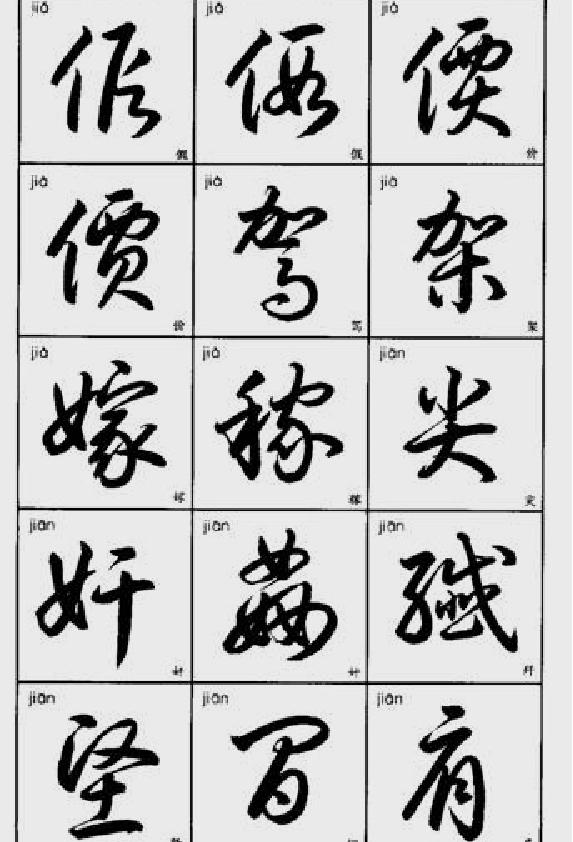 jiǎ jiǎ jià
假 假 價
假 假 价
jià jià jià
價 駕 架
价 驾 架
jià jià jiān
嫁 稼 尖
嫁 稼 尖
jiān jiān jiān
奸 姦 殲
奸 奸 歼
jiān jiān jiān
坚 间 肩